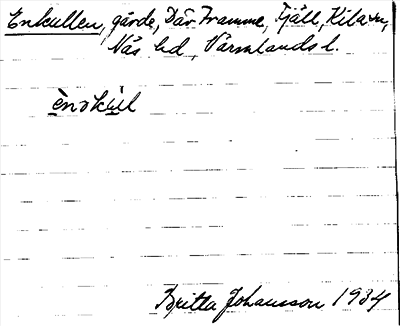 Enkullen, gårde, Där Framme, Fjäll, Kila sn,
Näs hd, Värmlands l.
ènokùl
Britta Johansson 1934